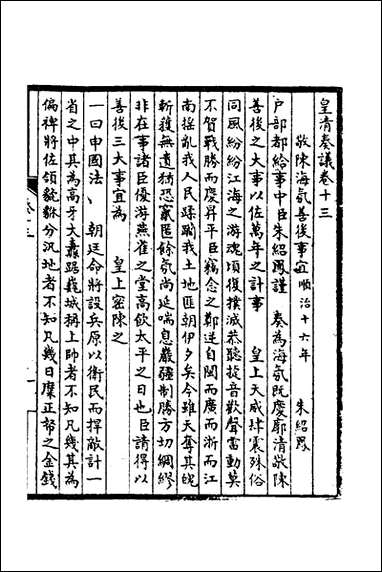 皇清奏議卷十三
敬陳海氛善後事宜順治十六年 朱紹鳳
戶部都給事中臣朱紹鳳謹 奏為海氛既慶廓清敬陳
善後之大事以佐萬年之計事 皇上天威肆震殊俗
同風紛紛江海之游魂頃復撲滅恭聽捷音歡聲雷動莫
不賀戰勝而慶昇平臣竊念之鄭逆自閩而廣而浙而江
南搖亂我人民蹂躪我土地匪朝伊夕矣今雖天奪其魄
斬獲無遺猶恐竄匿餘氛尚延喘息嚴疆制勝方切綢繆
非在事諸臣優游燕雀之堂高飲太平之日也臣請得以
善後三大事宜為 皇上密陳之
一曰申國法 朝廷命將設兵原以衛民而捍敵計一
省之中其為高牙大纛踞巍城稱上帥者不知凡幾其為
偏裨將佐領貔貅分汛地者不知凡幾日糜正帑之金錢